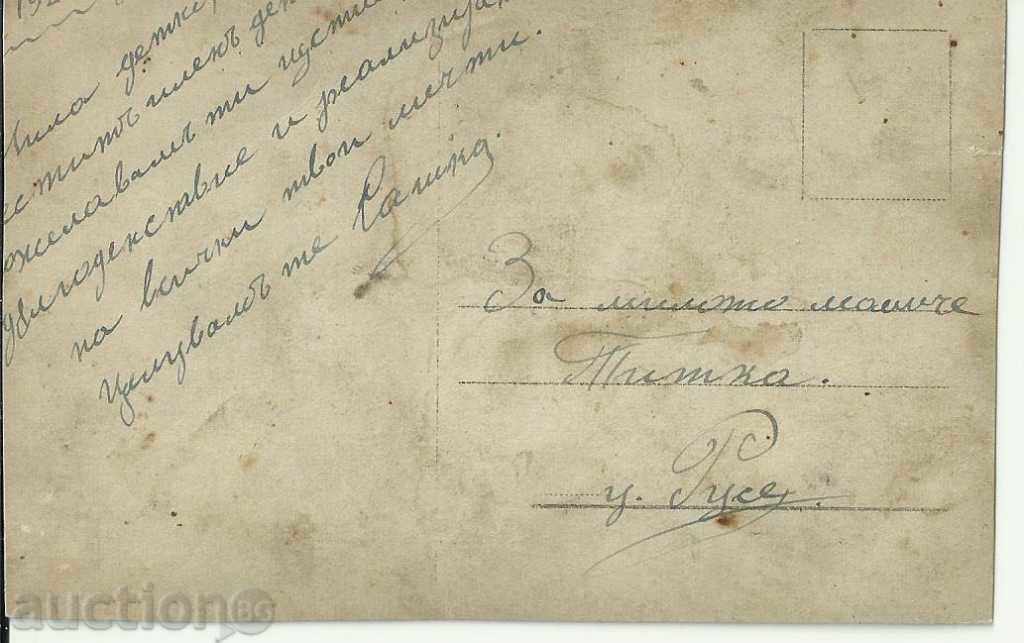 192
Мила детк
честитъ именъ ден
пожелавамъ ти щастие
дългоденствие и реализиран
на всички твои мечти.
Целувамъ те Сашка.
За милото майче
Титка.
ц. Русе.
auction BG